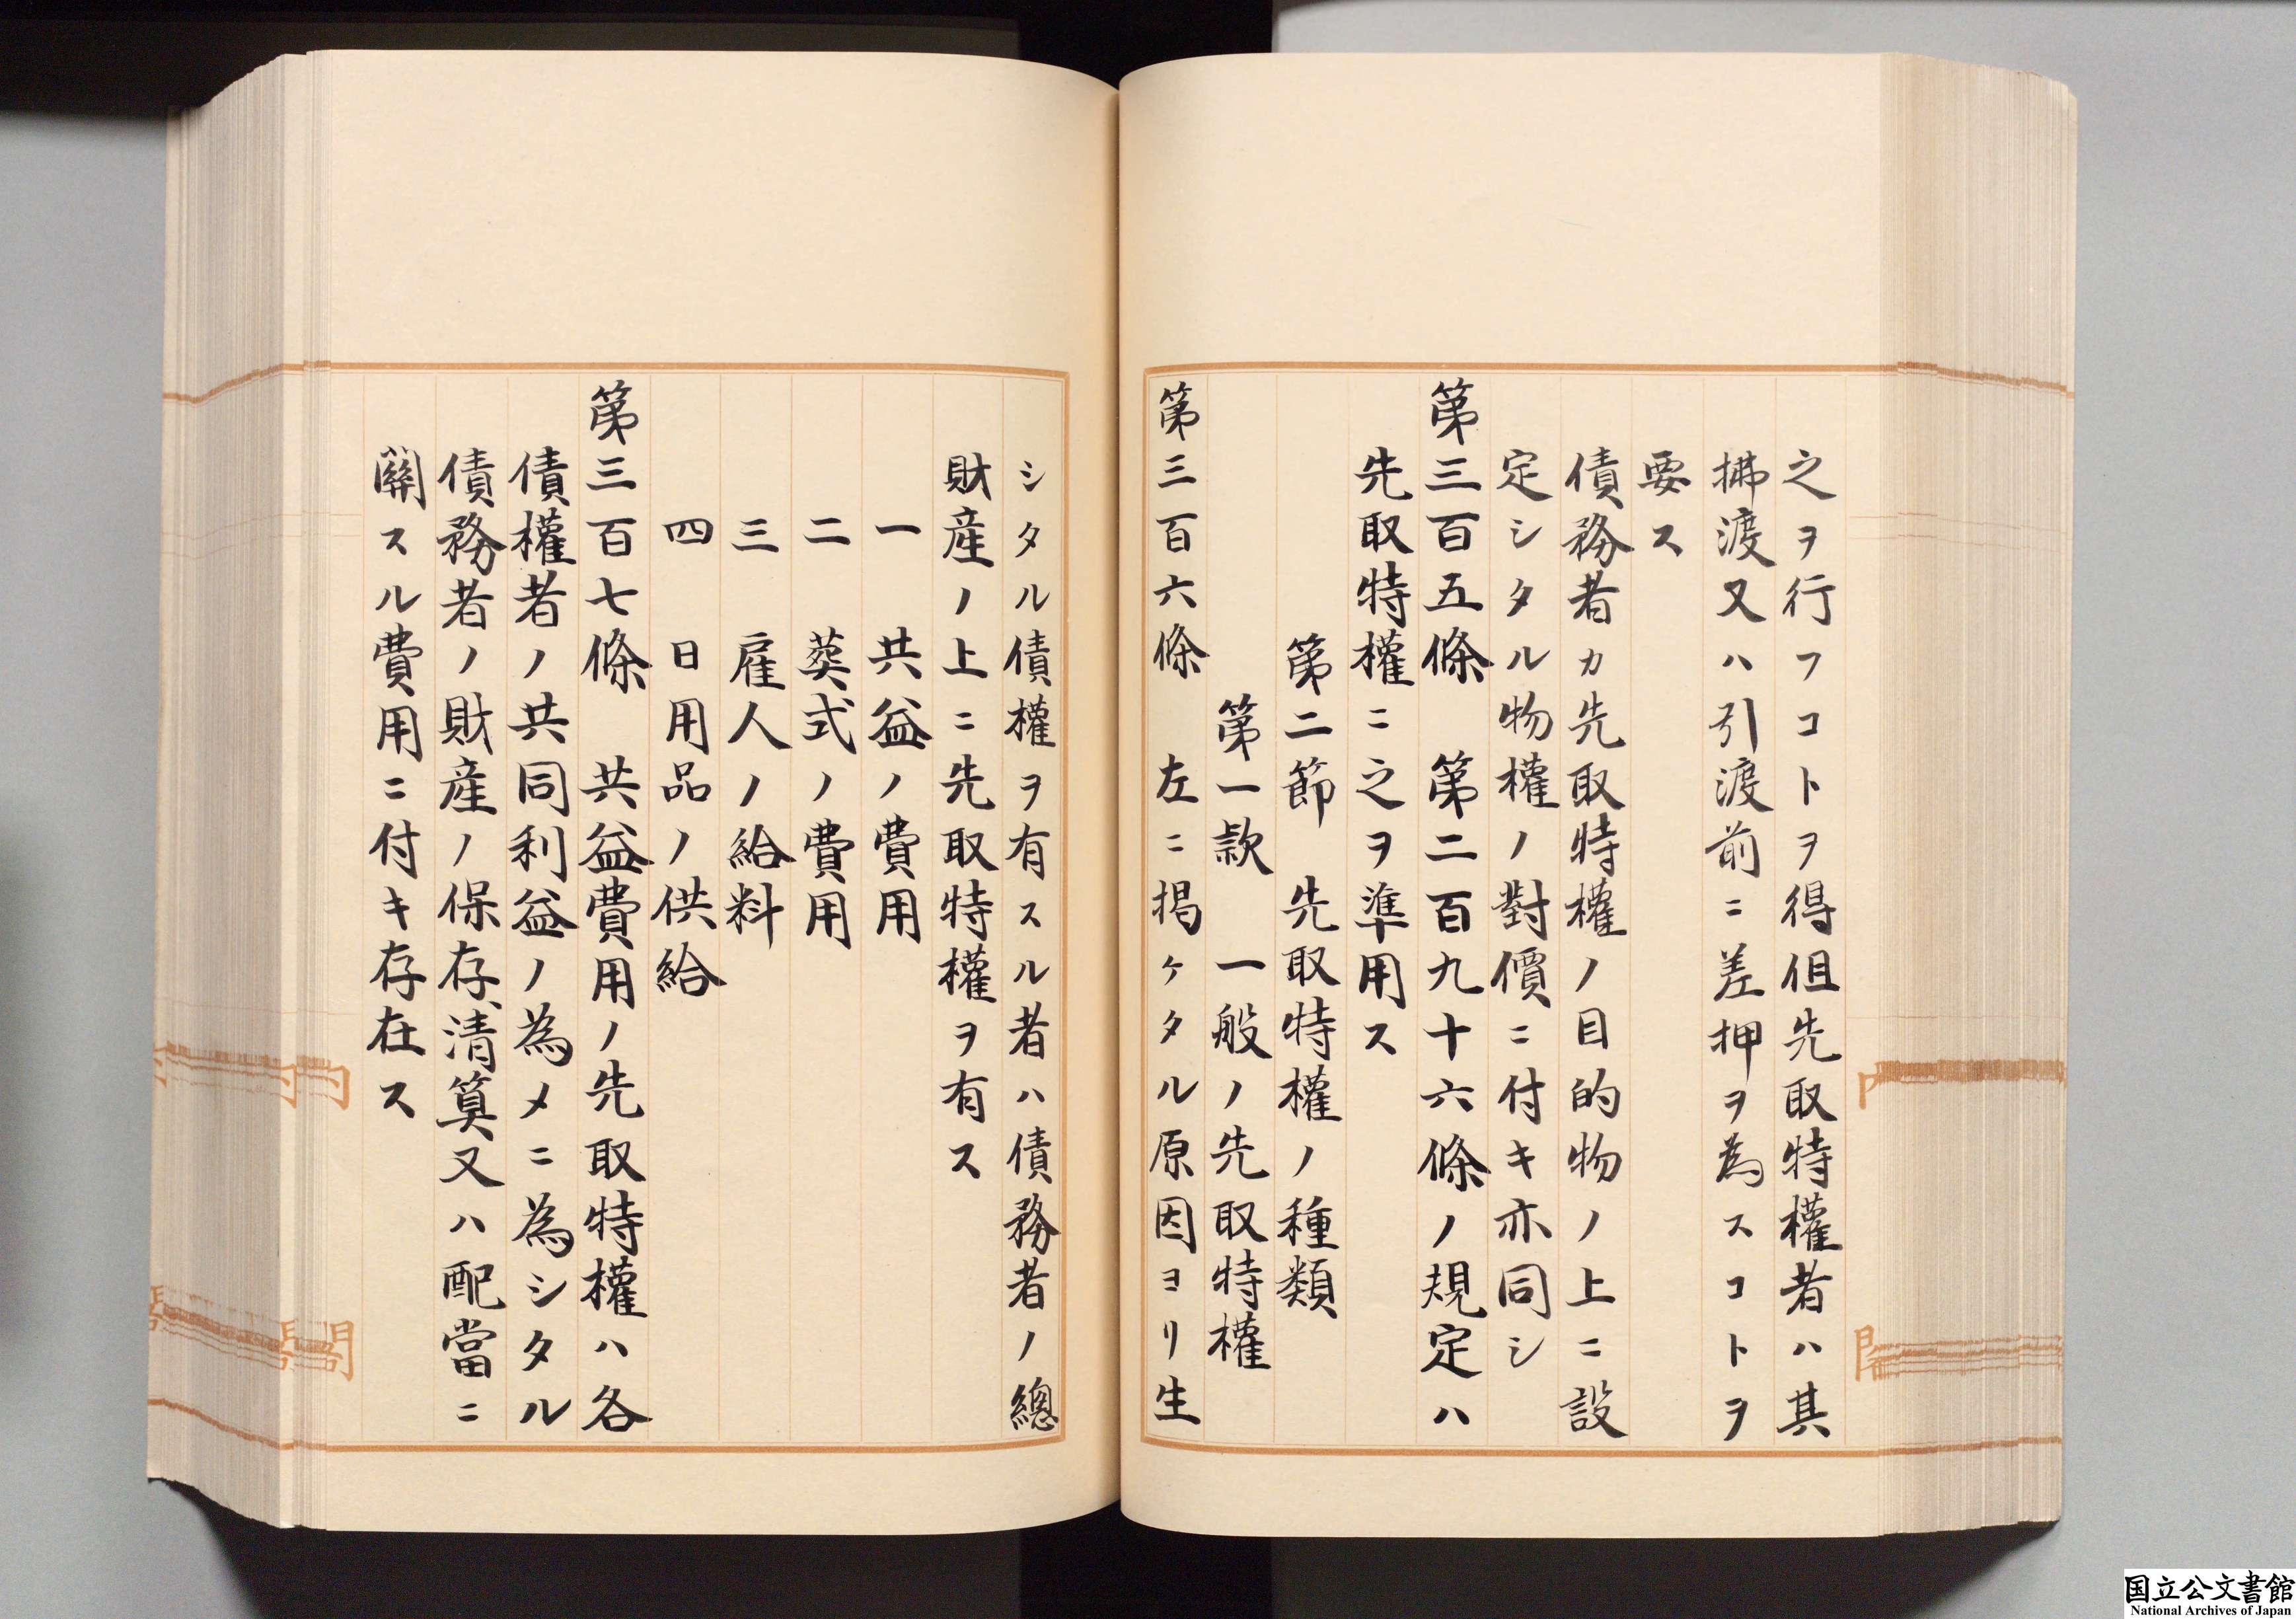 之ヲ行フコトヲ得但先取特權者ハ其
拂渡又ハ引渡前ニ差押ヲ為スコトヲ
要ス
債務者カ先取特權ノ目的物ノ上ニ設
定シタル物權ノ對價ニ付キ亦同シ
第三百五條　第二百九十六條ノ規定ハ
先取特權ニ之ヲ準用ス
第二節　先取特權ノ種類
第一款　一般ノ先取特權
第三百六條　左ニ掲ケタル原因ヨリ生
シタル債權ヲ有スル者ハ債務者ノ總
財産ノ上ニ先取特權ヲ有ス
一　共益ノ費用
二　葬式ノ費用
三　雇人ノ給料
四　日用品ノ供給
第三百七條　共益費用ノ先取特權ハ各
債權者ノ共同利益ノ為メニ為シタル
債務者ノ財産ノ保存、清算又ハ配當ニ
關スル費用ニ付キ存在ス
内
閣
国立公文書館
National Archives of Japan